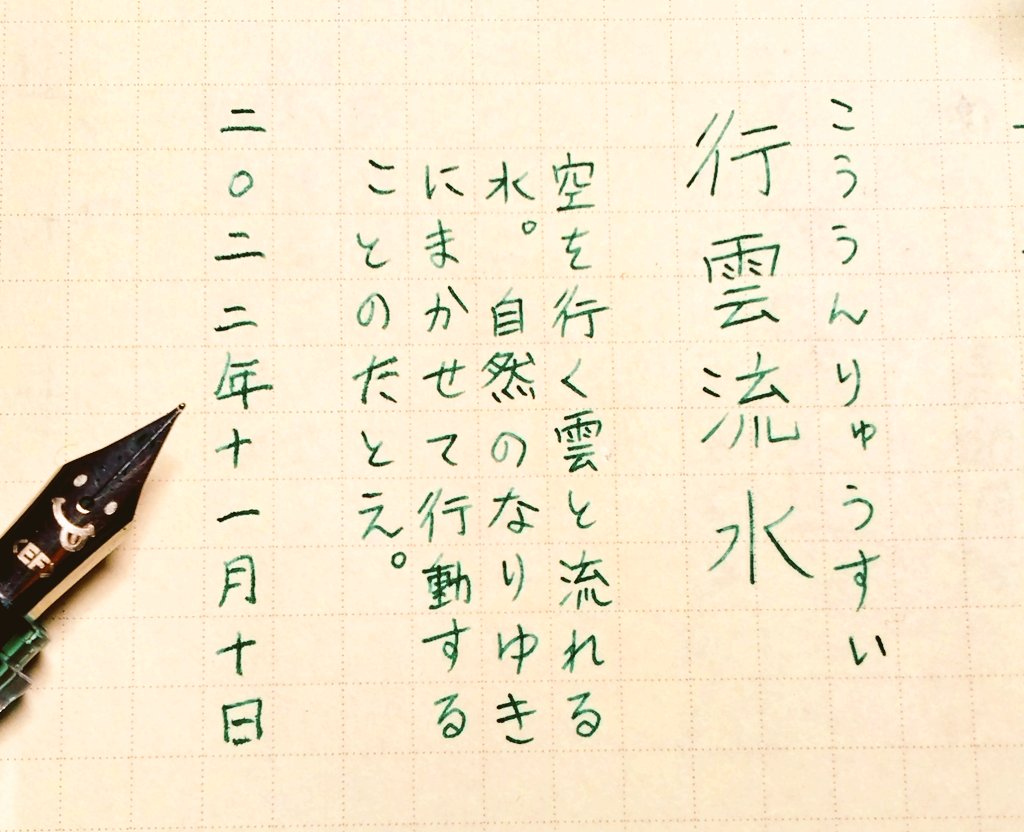 こううんりゅうすい
行雲流水
空を行く雲と流れる
水。 自然のなりゆき
にまかせて行動する
ことのたとえ。
二〇二二年十一月十日
EF